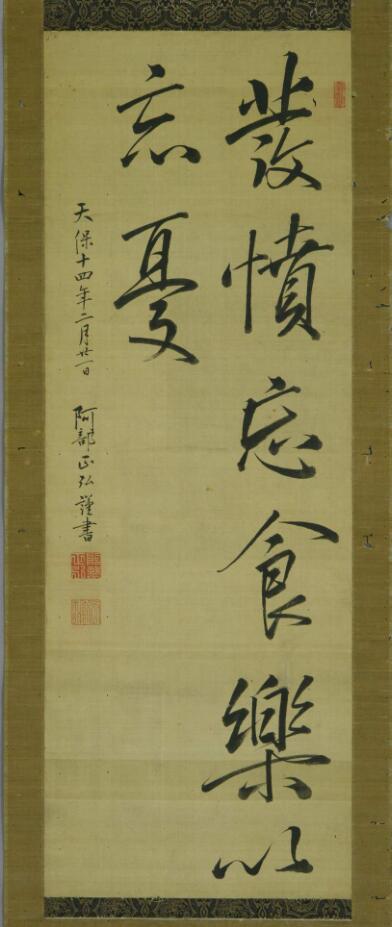 發憤忘食樂以
忘憂
天保十四年二月廿一日 阿部正弘謹書